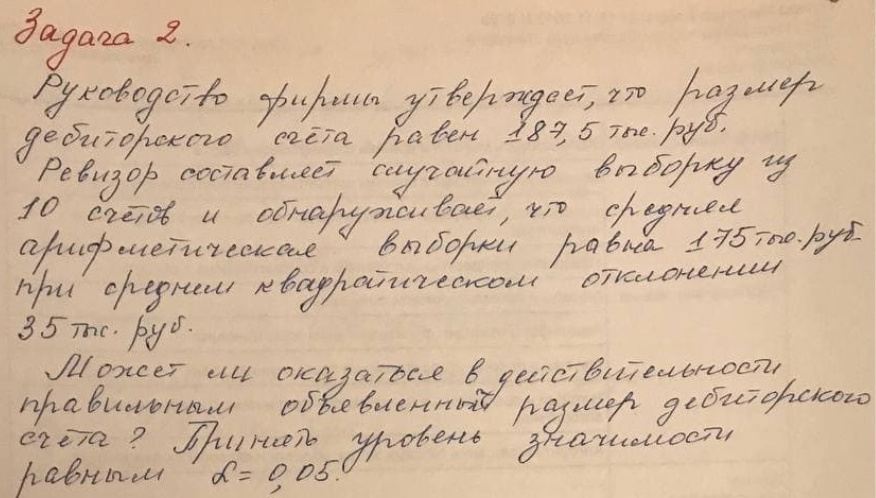 Задача 2.
Руководство фирмы утверждает, что размер
дебиторского счёта равен 187,5 тыс. руб.
Ревизор составляет случайную выборку из
10 счетов и обнаруживает, что средняя
арифметическая выборки равна 175 тыс. руб.
при среднем квадратическом отклонении
35 тыс. руб.
Может ли оказаться в действительности
правильным объявленный размер дебиторского
счёта? Принять уровень значимости
равным α = 0,05.